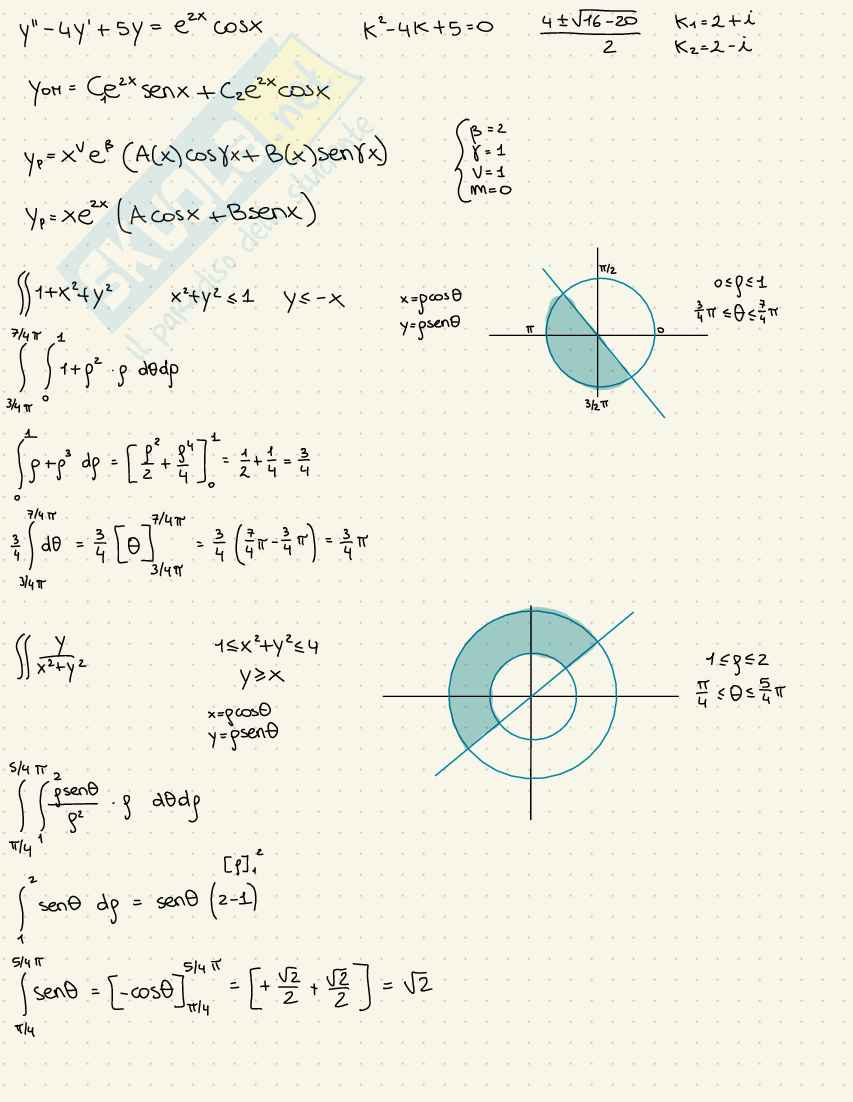 y'' - 4y' + 5y = e^{2x} cosx    K² - 4K + 5 = 0    (4 ± √(16-20)) / 2    K₁ = 2 + i
K₂ = 2 - i
y_{OM} = C₁e^{2x} senx + C₂e^{2x} cosx
y_p = x^ν e^β (A(x)cosγx + B(x)senγx)
β = 2
γ = 1
ν = 1
m = 0
y_p = xe^{2x} (A cosx + B senx)
SKUOLA.net
il paradiso dello studente
∬ 1+x²+y²    x²+y² ≤ 1    y ≤ -x    x = ρcosθ
y = ρsenθ
π/2
π    0
3/2 π
0 ≤ ρ ≤ 1
3/4 π ≤ θ ≤ 7/4 π
∫_{3/4 π}^{7/4 π} ∫_0^1 1+ρ² · ρ dθdρ
∫_0^1 ρ+ρ³ dρ = [ρ²/2 + ρ⁴/4]_0^1 = 1/2 + 1/4 = 3/4
3/4 ∫_{3/4 π}^{7/4 π} dθ = 3/4 [θ]_{3/4 π}^{7/4 π} = 3/4 (7/4 π - 3/4 π) = 3/4 π
∬ y/(x²+y²)    1 ≤ x²+y² ≤ 4
y ≥ x
x = ρcosθ
y = ρsenθ
1 ≤ ρ ≤ 2
π/4 ≤ θ ≤ 5/4 π
∫_{π/4}^{5/4 π} ∫_1^2 ρsenθ/ρ² · ρ dθdρ
[ρ]_1^2
∫_1^2 senθ dρ = senθ (2-1)
∫_{π/4}^{5/4 π} senθ = [-cosθ]_{π/4}^{5/4 π} = [+ √2/2 + √2/2] = √2